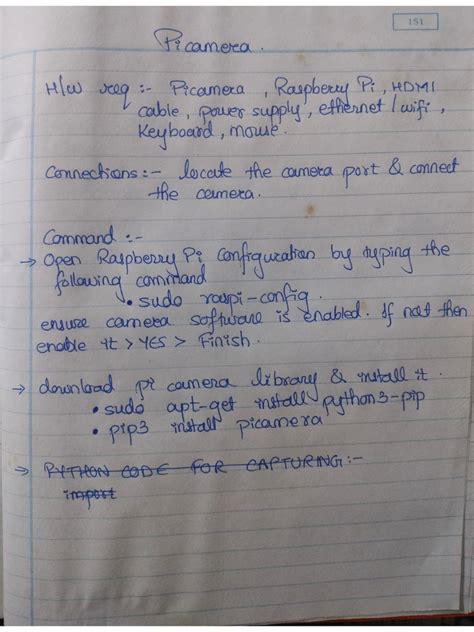 151
Picamera.
H/w req :- Picamera, Raspberry Pi, HDMI
cable, power supply, ethernet / wifi,
Keyboard, mouse.
Connections :- locate the camera port & connect
the camera.
Command :-
→ Open Raspberry Pi Configuration by typing the
following command
• sudo raspi-config.
ensure camera software is enabled. If not then
enable it > YES > Finish.
→ download pi camera library & install it.
• sudo apt-get install python3-pip
• pip3 install picamera
→ PYTHON CODE FOR CAPTURING:-
import